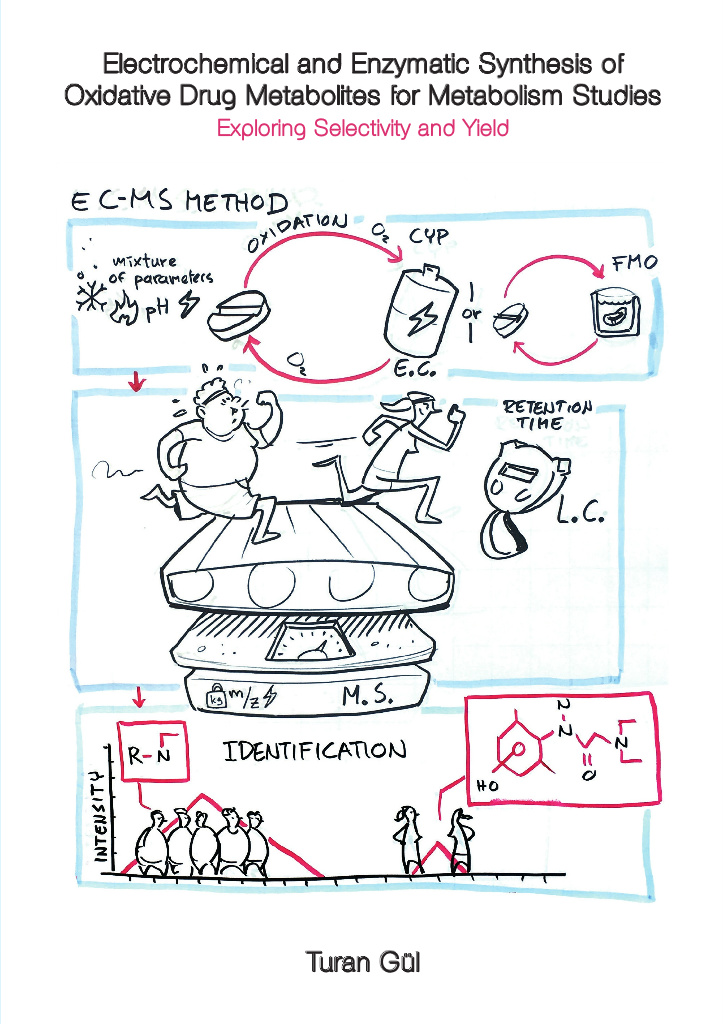 Electrochemical and Enzymatic Synthesis of
Oxidative Drug Metabolites for Metabolism Studies
Exploring Selectivity and Yield
EC-MS METHOD
OXIDATION O2 CYP
mixture
of parameters
pH
or
FMO
O2
E.C.
RETENTION
TIME
L.C.
kg m/z
M.S.
IDENTIFICATION
R-N
INTENSITY
N
N
N
O
HO
Turan Gül